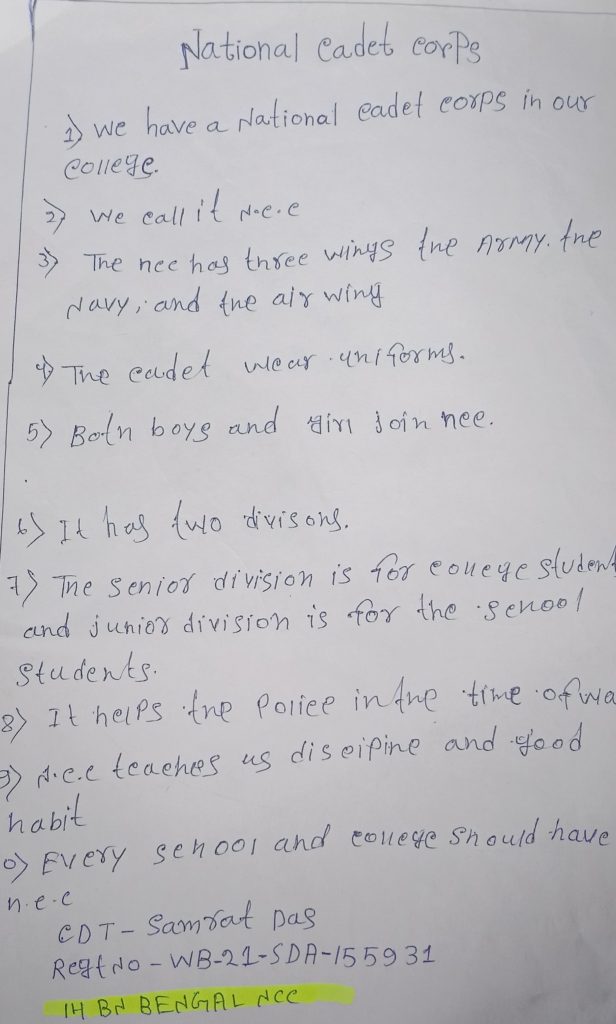 National Cadet Corps
1) We have a National cadet corps in our
College.
2) We call it N.C.C
3) The ncc has three wings the Army. the
Navy, and the air wing
4) The cadet wear uniforms.
5) Both boys and girl join ncc.
6) It has two divisons.
7) The senior division is for college student
and junior division is for the school
students.
8) It helps the police in the time of wa
9) N.C.C teaches us discipine and good
habit
0) Every school and college should have
n.c.c
CDT - Samrat Das
Regt No - WB-21-SDA-155931
14 BN BENGAL NCC